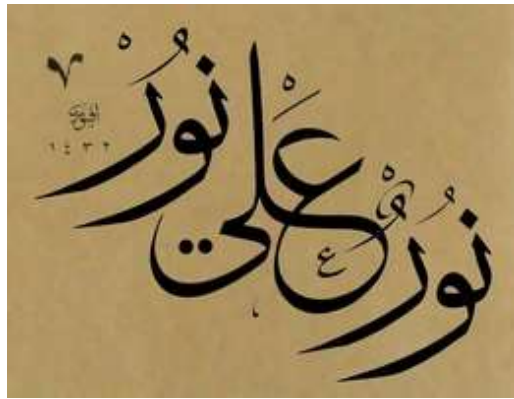 نور علي نور
١٤٣٢